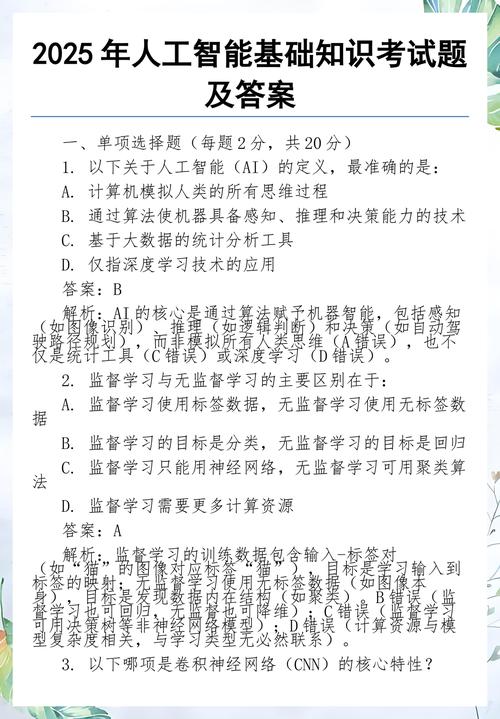 2025年人工智能基础知识考试题
及答案
一、单项选择题（每题2分，共20分）
1. 以下关于人工智能（AI）的定义，最准确的是：
A. 计算机模拟人类的所有思维过程
B. 通过算法使机器具备感知、推理和决策能力的技术
C. 基于大数据的统计分析工具
D. 仅指深度学习技术的应用
答案：B
解析：AI的核心是通过算法赋予机器智能，包括感知
（如图像识别）、推理（如逻辑判断）和决策（如自动驾
驶路径规划），而非模拟所有人类思维（A错误），也不
仅是统计工具（C错误）或深度学习（D错误）。
2. 监督学习与无监督学习的主要区别在于：
A. 监督学习使用标签数据，无监督学习使用无标签数
据
B. 监督学习的目标是分类，无监督学习的目标是回归
C. 监督学习只能用神经网络，无监督学习可用聚类算
法
D. 监督学习需要更多计算资源
答案：A
解析：监督学习的训练数据包含输入-标签对
（如“猫”的图像对应标签“猫”），目标是学习输入到
标签的映射；无监督学习使用无标签数据（如图像本
身），目标是发现数据内在结构（如聚类）。B错误（监
督学习也可回归，无监督也可降维）；C错误（监督学习
可用决策树等非神经网络模型）；D错误（计算资源与模
型复杂度相关，与学习类型无必然联系）。
3. 以下哪项是卷积神经网络（CNN）的核心特性？